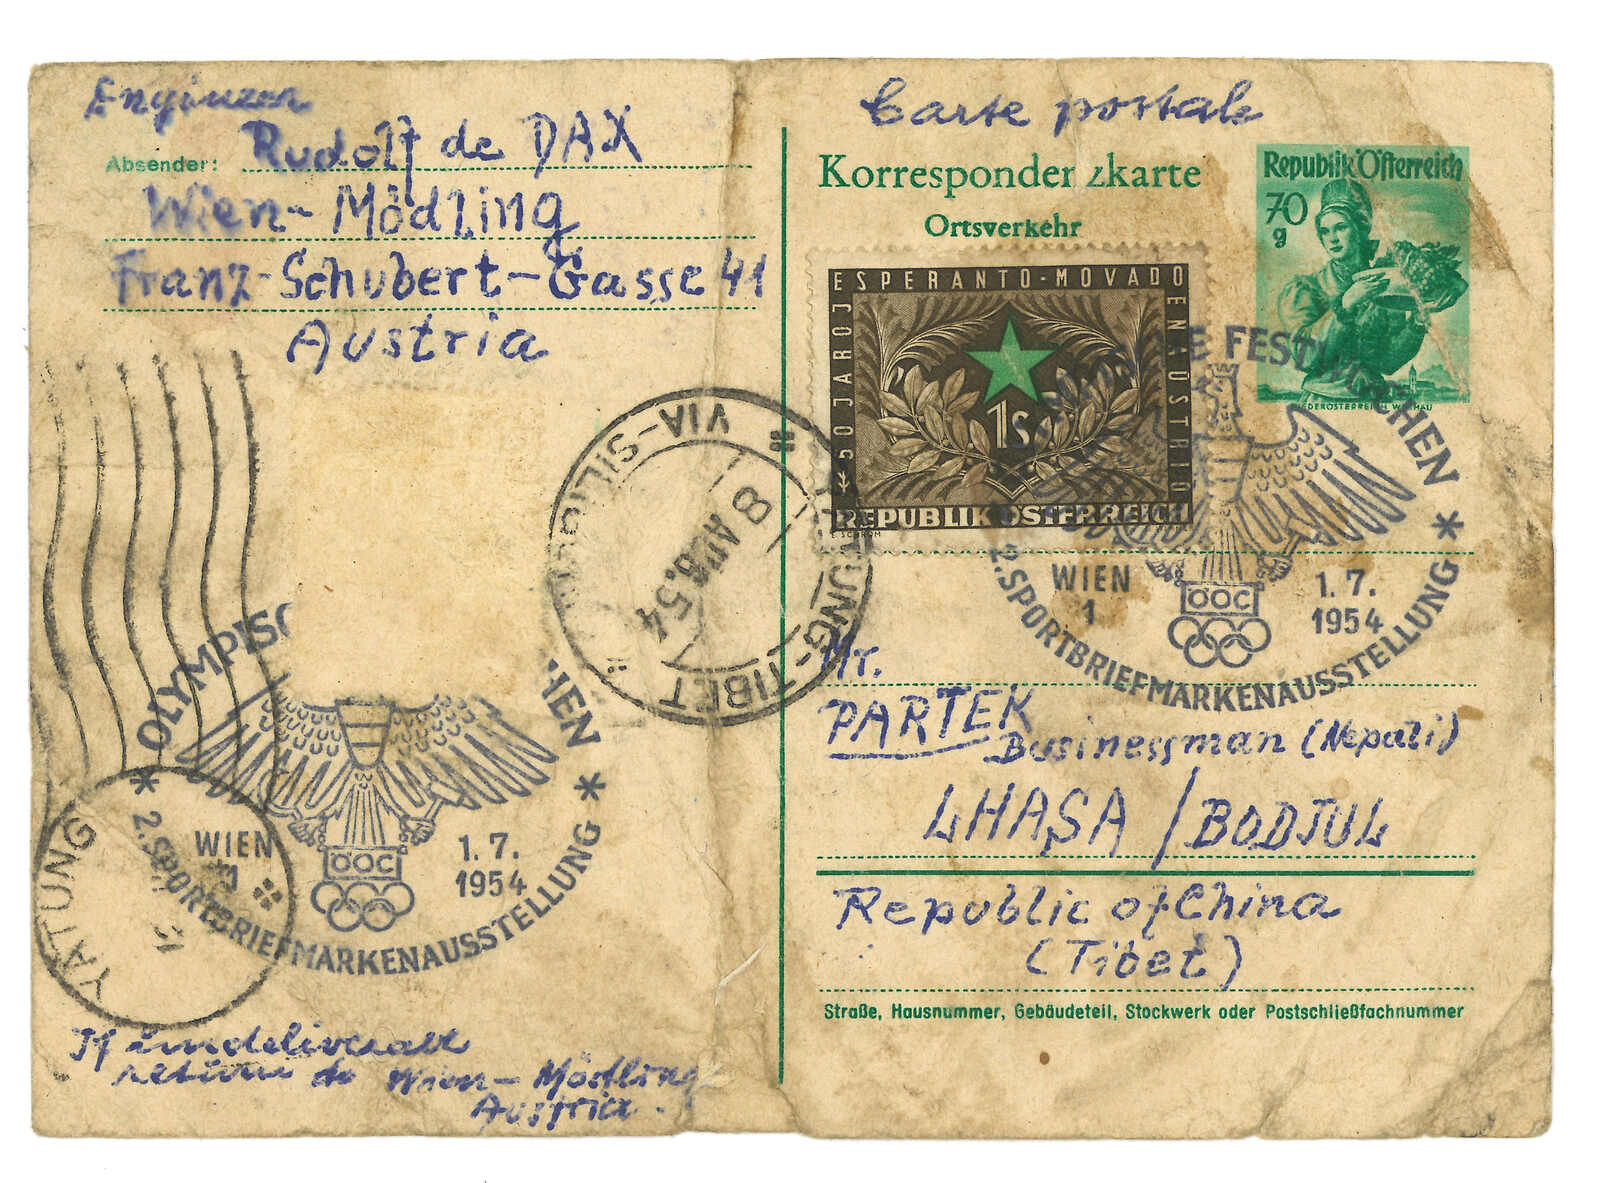 Enginzer
Absender: Rudolf de DAX
Wien-Mödling
Franz-Schubert-Gasse 41
Austria
Carte postale
Korrespondenzkarte
Ortsverkehr
Republik Österreich
70
g
ESPERANTO-MOVADO
50 JAROJ
EN AUSTRIO
1s
REPUBLIK ÖSTERREICH
E. SCHROM
FESTWOCHEN
WIEN
1
1.7.
1954
ÖOC
* 2.SPORTBRIEFMARKENAUSSTELLUNG *
YATUNG-TIBET
VIA-SILIGURI
8 APR.54
OLYMPISC
CHEN
WIEN
1
1.7.
1954
ÖOC
* 2.SPORTBRIEFMARKENAUSSTELLUNG *
YATUNG
Mr.
PARTEK
Businessman (Nepali)
LHASA / BODJUL
Republic of China
(Tibet)
Straße, Hausnummer, Gebäudeteil, Stockwerk oder Postschließfachnummer
If undeliverable
return to Wien-Mödling
Austria.